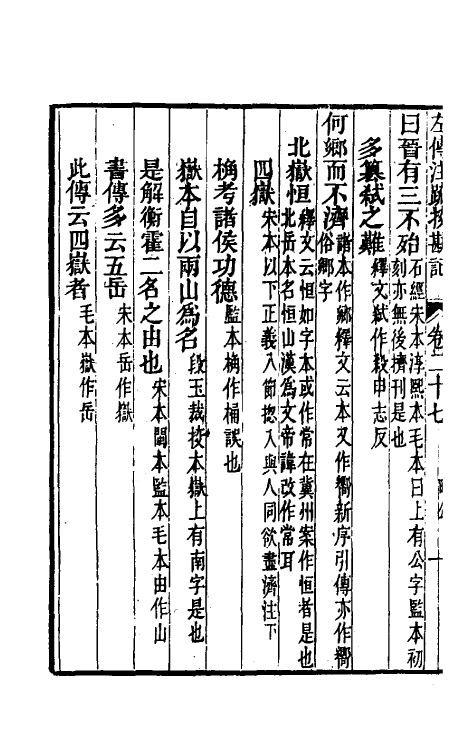 左傳注疏挍勘記 卷二十七
曰晉有三不殆石經宋本淳熙本毛本日上有公字監本初
刻亦無後擠刊是也
多篡弒之難釋文弑作殺申志反
何鄉而不濟諸本作鄉釋文云本又作嚮新序引傳亦作嚮
濟俗鄉字
北嶽恒釋文云恒如字本或作常在冀州案作恒者是也
北岳本名恒山漢為文帝諱改作常耳
四嶽宋本以下正義入節揔入與人同欲盡濟注下
桷考諸侯功德監本桷作桶誤也
嶽本自以兩山為名段玉裁挍本嶽上有南字是也
是解衡霍二名之由也宋本閩本監本毛本由作山
書傳多云五岳宋本岳作嶽
此傳云四嶽者毛本嶽作岳